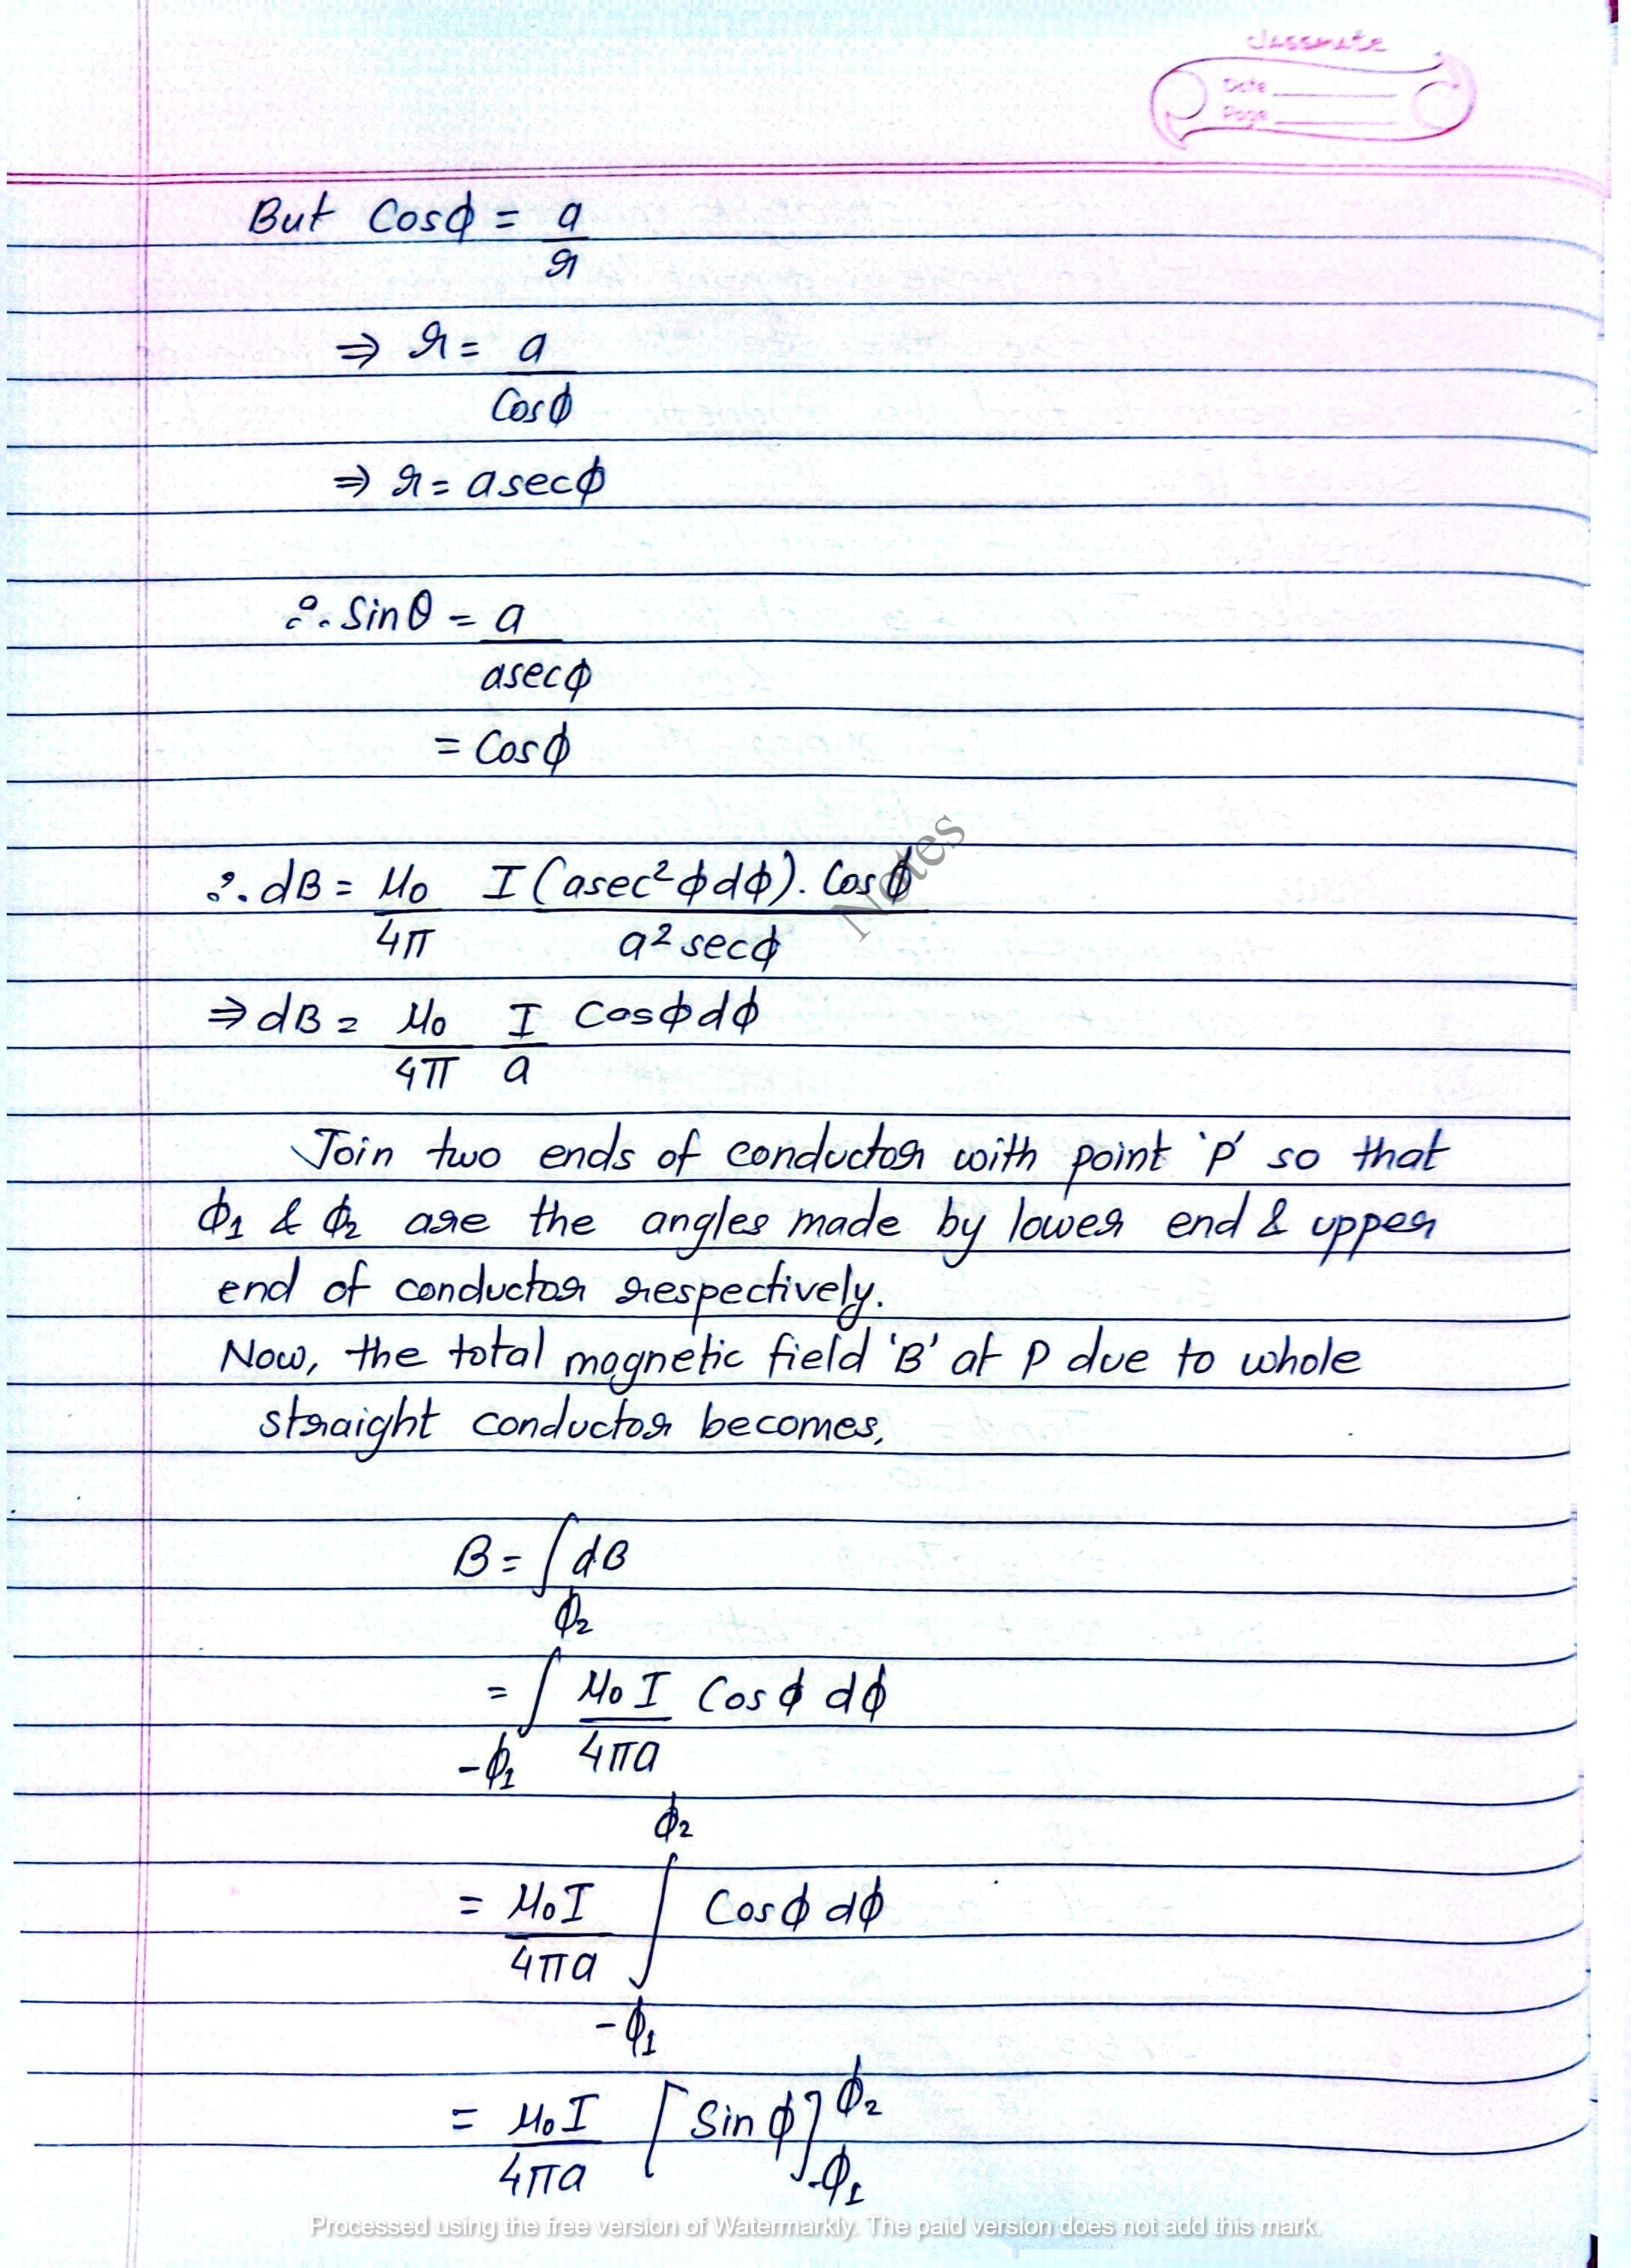 classmate
Date
Page
But Cosϕ = a/r
⇒ r = a/Cosϕ
⇒ r = asecϕ
∴ Sinθ = a/asecϕ
= Cosϕ
∴ dB = μ₀/4π I(asec²ϕdϕ). Cosϕ/a²secϕ
Notes
⇒ dB = μ₀/4π I/a Cosϕdϕ
Join two ends of conductor with point 'P' so that
ϕ₁ & ϕ₂ are the angles made by lower end & upper
end of conductor respectively.
Now, the total magnetic field 'B' at P due to whole
straight conductor becomes,
B = ∫dB
ϕ₂
= ∫ μ₀I/4πa Cosϕ dϕ
-ϕ₁
ϕ₂
= μ₀I/4πa ∫ Cosϕ dϕ
-ϕ₁
= μ₀I/4πa [Sinϕ]ϕ₂
-ϕ₁
Processed using the free version of Watermarkly. The paid version does not add this mark.